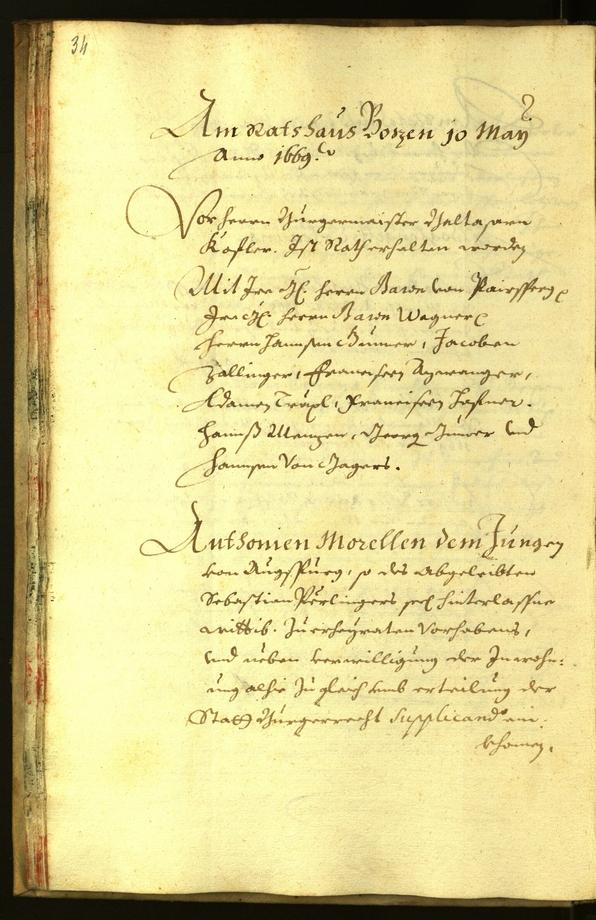 34
Am Ratshaus Bozen 10 May
Anno 1669.
Vor herrn Burgermaister Baltasarn
Kofler. Ist Rath erhalten worden
Mit Ire herrn Baron von Pairsperg
Ire herrn Baron Wagner
herrn Hannsen Jacoben
Zallinger, Francisen
Adamen Tråpl, Francisen Hafner.
Hannß Menzen, Georg und
Hannsen von Jagers.
Anthonien Morellen dem Jungen
von Augspurg, so des abgeleibten
Sebastian Perlingers seel hinterlassne
wittib. Zu erheyraten Vorhabens,
und neben verwilligung der Inwohn:
ung alhie zugleich umb erteilung der
Statt Burgerrecht Supplicando ein:
khomen.